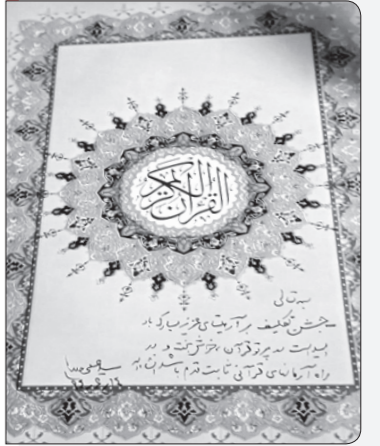 القرآن الکریم
بسمه‌تعالی
جشن تکلیف بر آرمیتای عزیز مبارک باد
امید است در پرتو قرآن بدرخشی و در
راه آرمان‌های قرآنی ثابت قدم باشی ان‌شاءالله